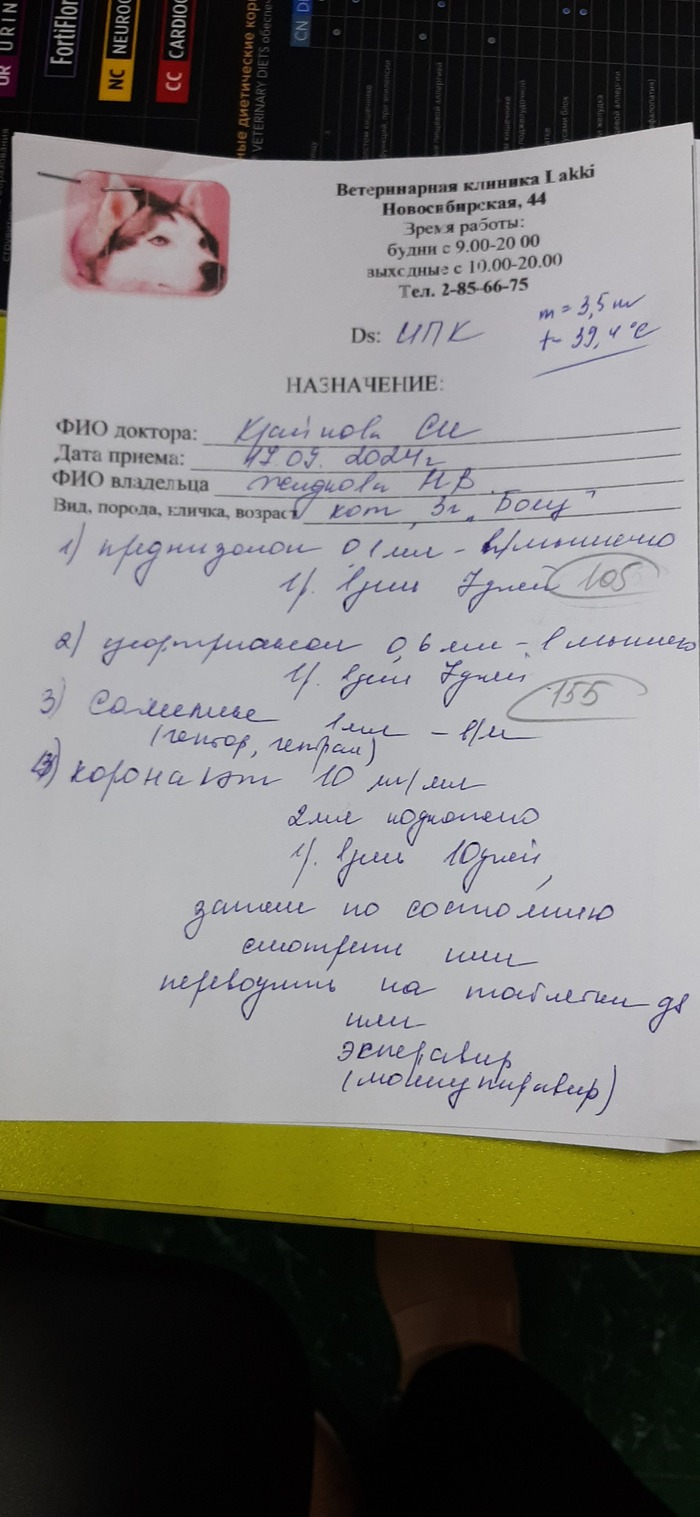 UR URIN
FortiFlor
NC NEUROC
CC CARDIOC
ные диетические кор
VETERINARY DIETS обеспеч
CN DI
Ветеринарная клиника Lakki
Новосибирская, 44
Время работы:
будни с 9.00-20 00
выходные с 10.00-20.00
Тел. 2-85-66-75
m = 3,5 кг
t- 39,4 °C
Ds: ИПК
НАЗНАЧЕНИЕ:
ФИО доктора:
Дата приема: 17.09. 2024г
ФИО владельца НВ
Вид, порода, кличка, возраст кот, 3г „
1) преднизолон 0,1мл - в/мышечно
1р. в день 7дней 105
2) цефтриаксон 0,6 мл - в мышечно
1р. в день 7дней
155
3) 1мл - в/м
(гептор, гептрал)
4) коронакэт 10 мг/мл
2мл подкожно
1р. в день 10дней,
затем по состоянию
смотрим или
переводить на таблетки gs
или
эсперавир
(молнупиравир)